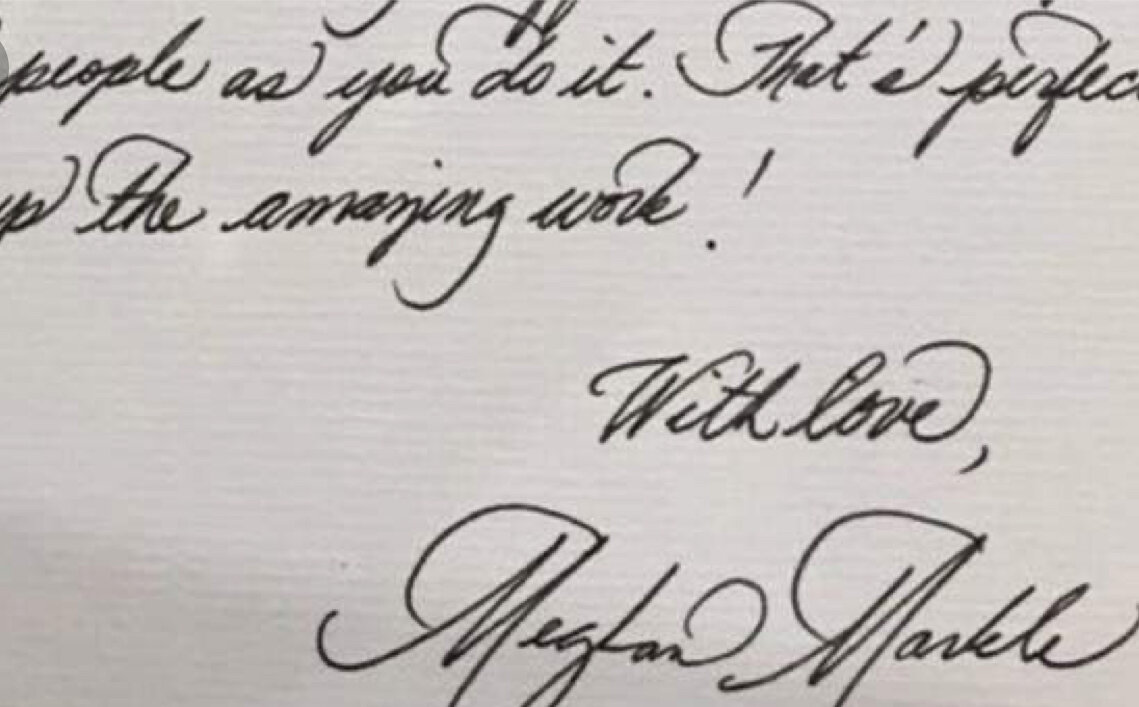 people as you do it. That's perfec
up the amazing work!
With love,
Meghan Markle